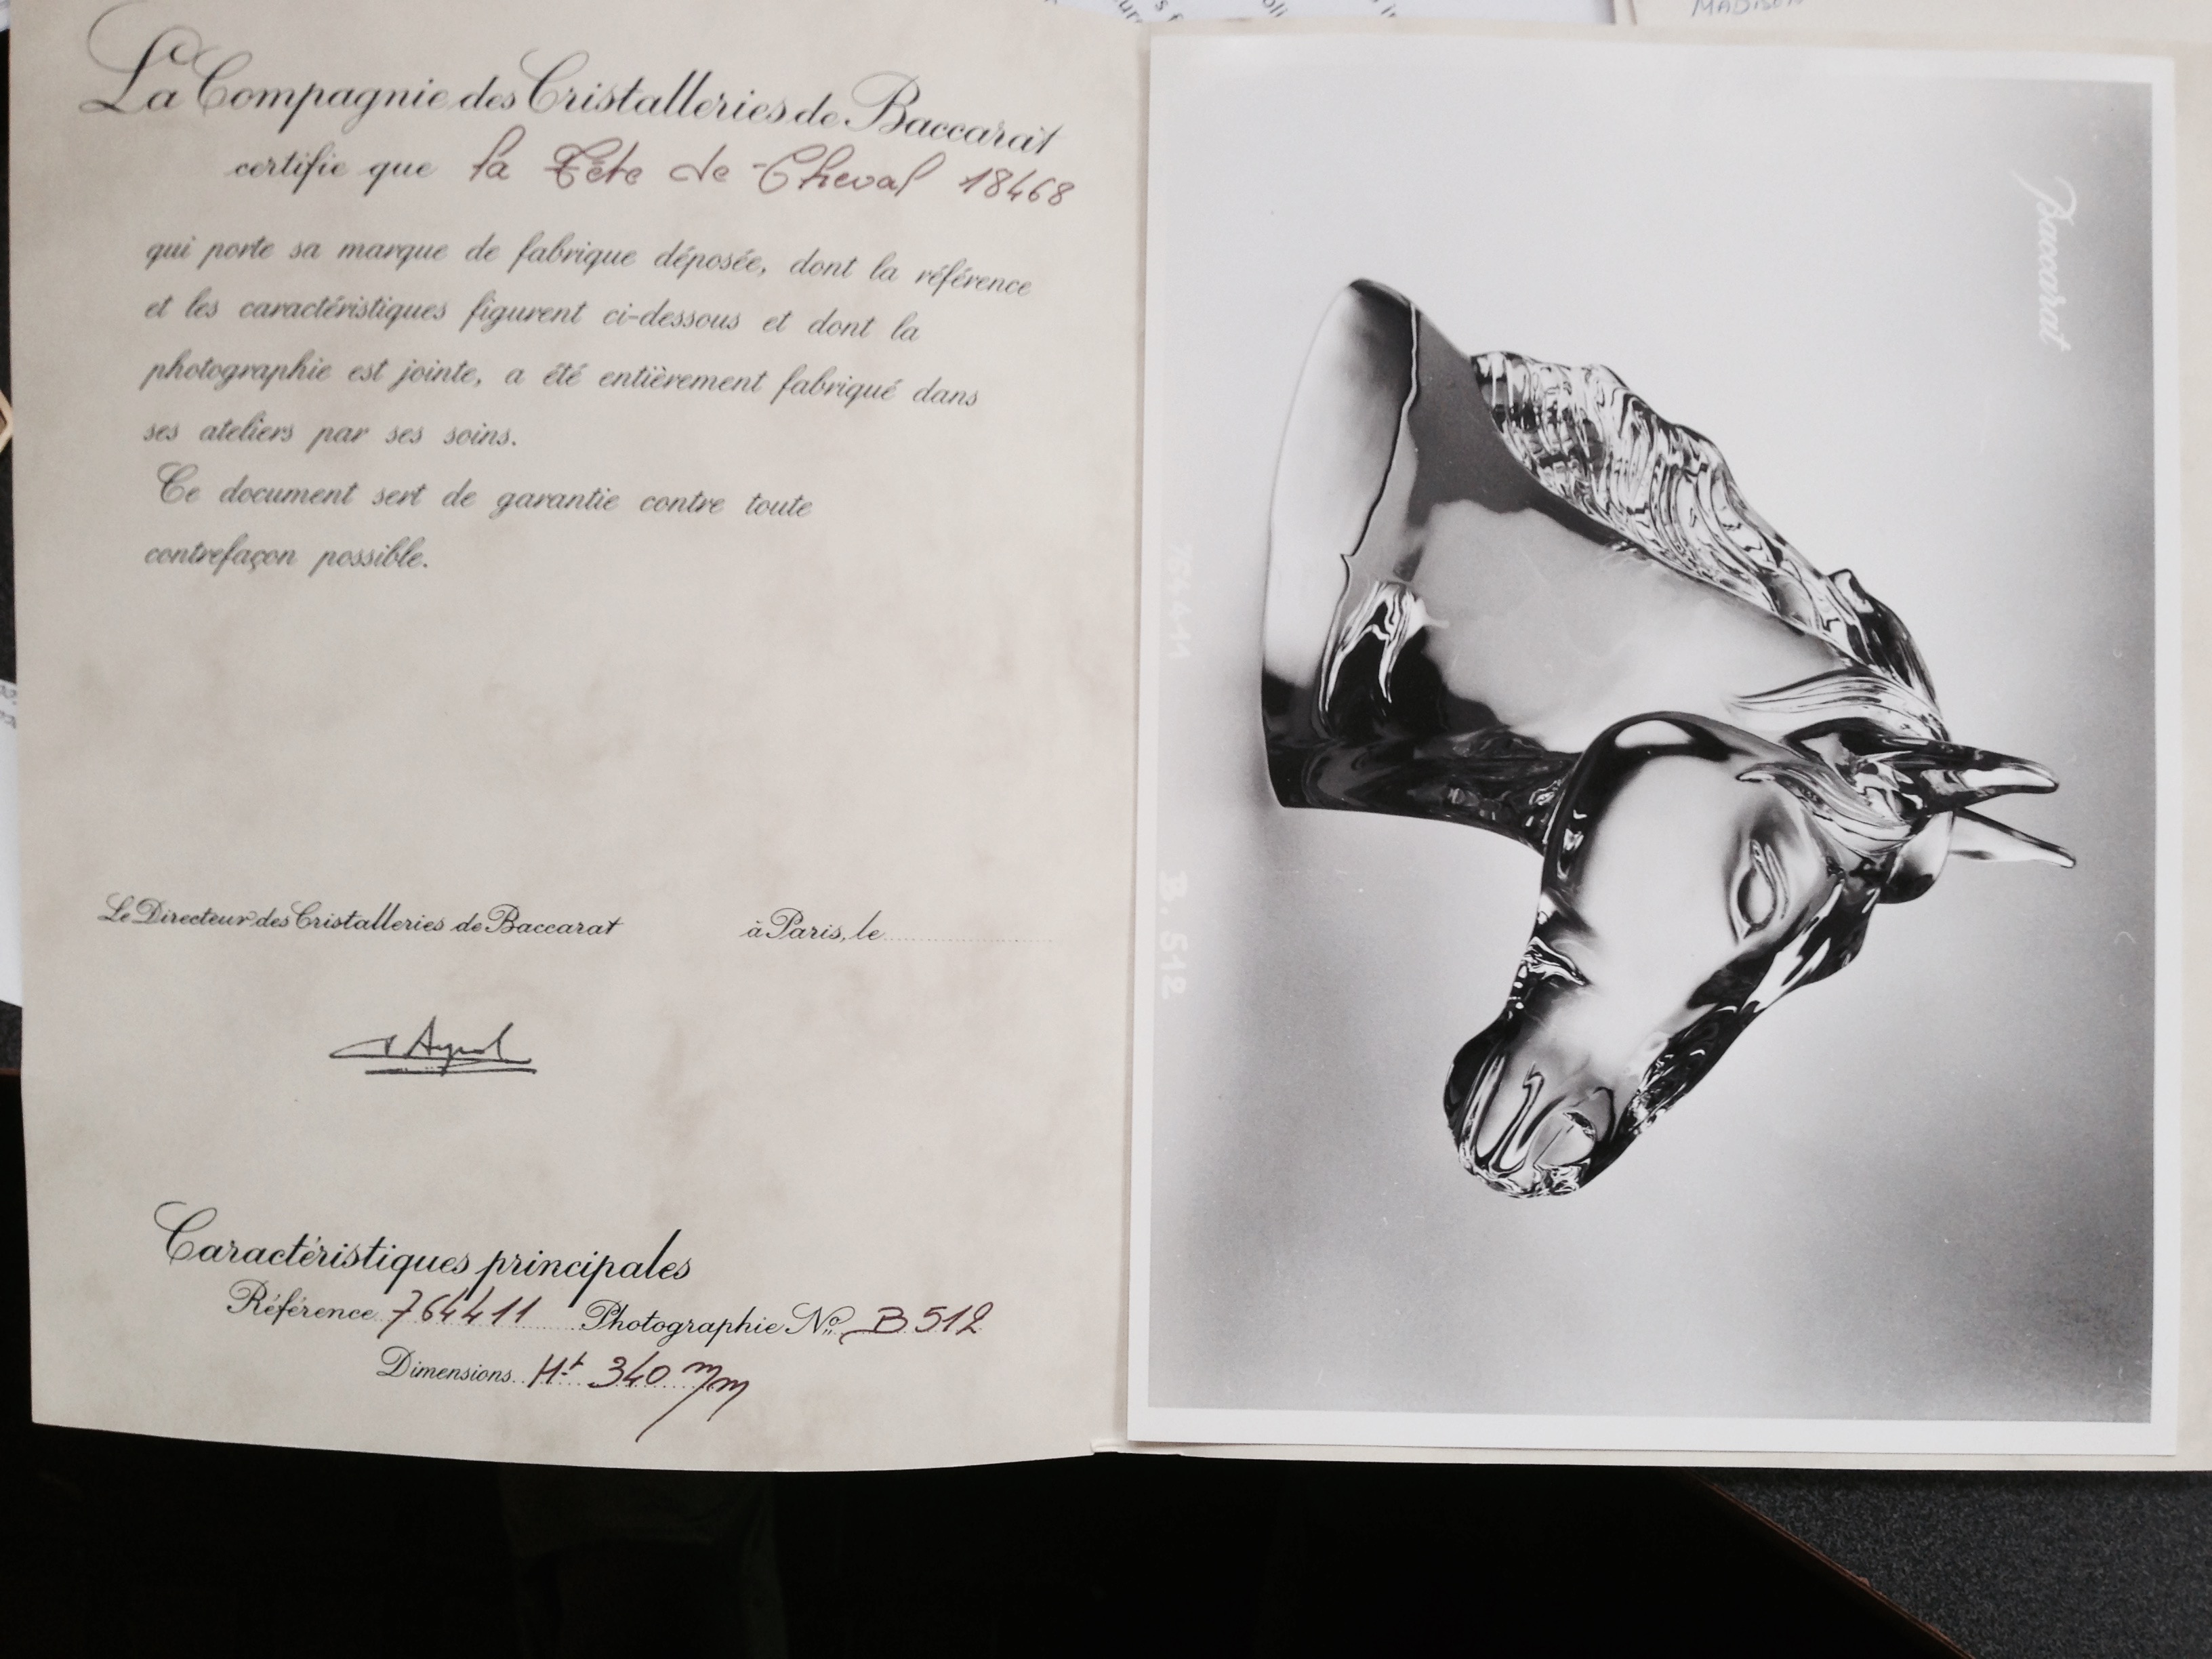 MADISON
La Compagnie des Cristalleries de Baccarat
certifie que la Tête de Cheval 18468
qui porte sa marque de fabrique déposée, dont la référence
et les caractéristiques figurent ci-dessous et dont la
photographie est jointe, a été entièrement fabriqué dans
ses ateliers par ses soins.
Ce document sert de garantie contre toute
contrefaçon possible.
Le Directeur des Cristalleries de Baccarat à Paris, le
Caractéristiques principales
Référence 764411 Photographie No. B 512
Dimensions Ht 340 m/m
Baccarat
764411 B.512